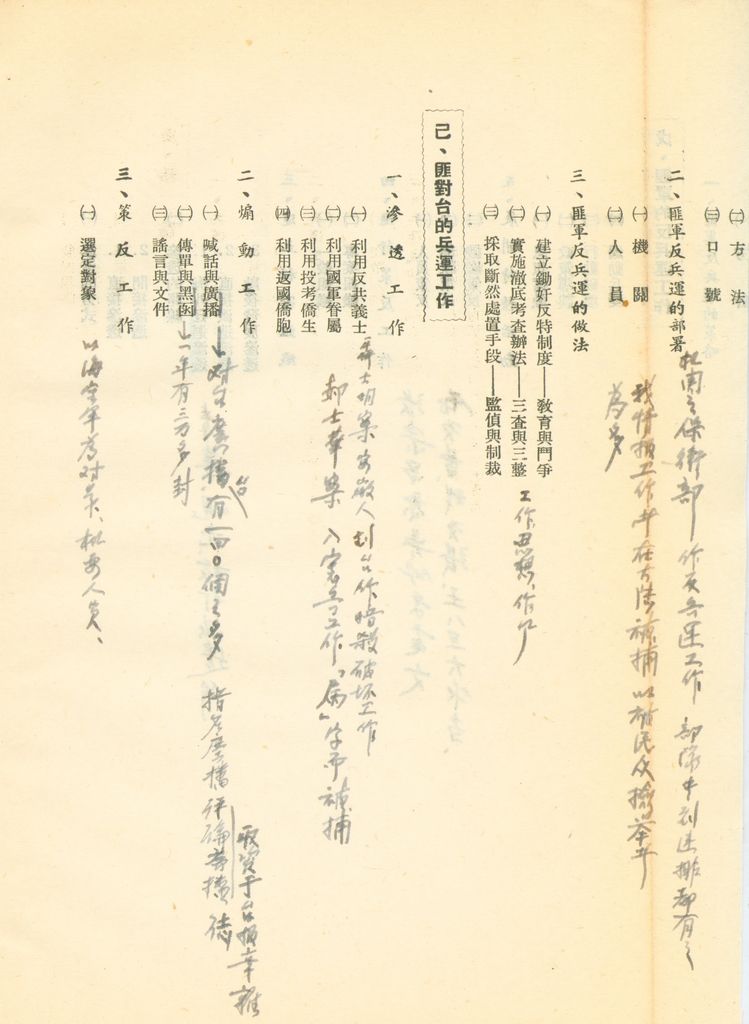 ㈡方法
㈢口號
二、匪軍反兵運的部署
㈠機關 保衛部 作反兵運工作 部隊中到連排都有之
㈡人員 我情報工作 在大陸被捕以
為多
三、匪軍反兵運的做法
㈠建立鋤奸反特制度——教育與鬥爭
㈡實施澈底考查辦法——三查與三整 工作、思想、作
㈢採取斷然處置手段——監偵與制裁
己、匪對台的兵運工作
一、滲透工作
㈠利用反共義士 案 人到台作暗殺破坏工作
㈡利用國軍眷屬 案 工作「病」字而被捕
㈢利用投考僑生
㈣利用返國僑胞
二、煽動工作
㈠喊話與廣播 對台廣播台有一四〇個之多 指名廣播 評論廣播
取資于台報章雜
㈡傳單與黑函 一年有三万多封
㈢謠言與文件
三、策反工作
㈠選定對象 以海空軍為對象、机要人員、